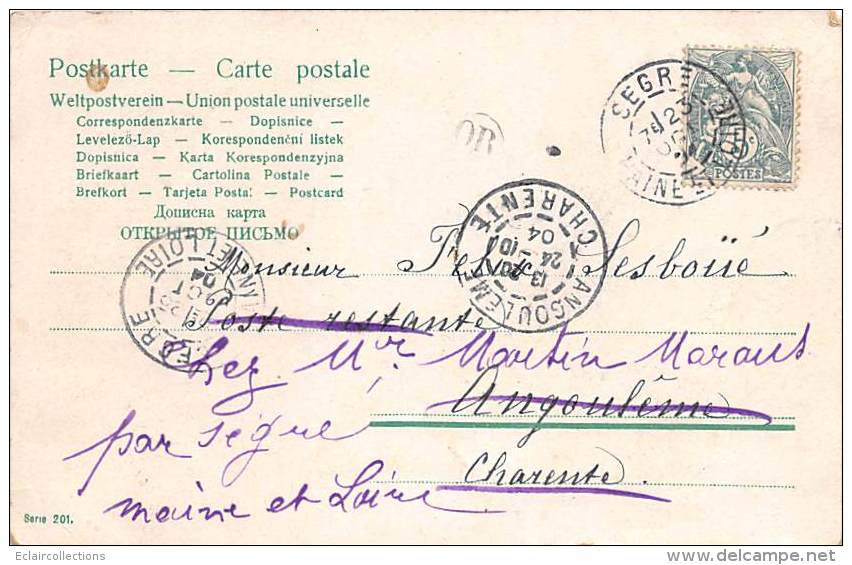 Postkarte — Carte postale
Weltpostverein — Union postale universelle
Correspondenzkarte — Dopisnice —
Levelező-Lap — Korespondenční listek
Dopisnica — Karta Korespondenzyjna
Briefkaart — Cartolina Postale —
Brefkort — Tarjeta Postal — Postcard
Дописна карта
ОТКРЫТОЕ ПИСЬМО
OR
SEGRÉ
MAINE-ET-LOIRE
POSTES
ANGOULEME
CHARENTE
13 20
24 -10
04
ET LOIRE
04
Monsieur Felix Sesboüé
Poste restante
Chez Mr. Martin Maraus
Angoulême
par Ségré
Charente.
maine et Loire
Serie 201.
Eclaircollections
delcampe.net